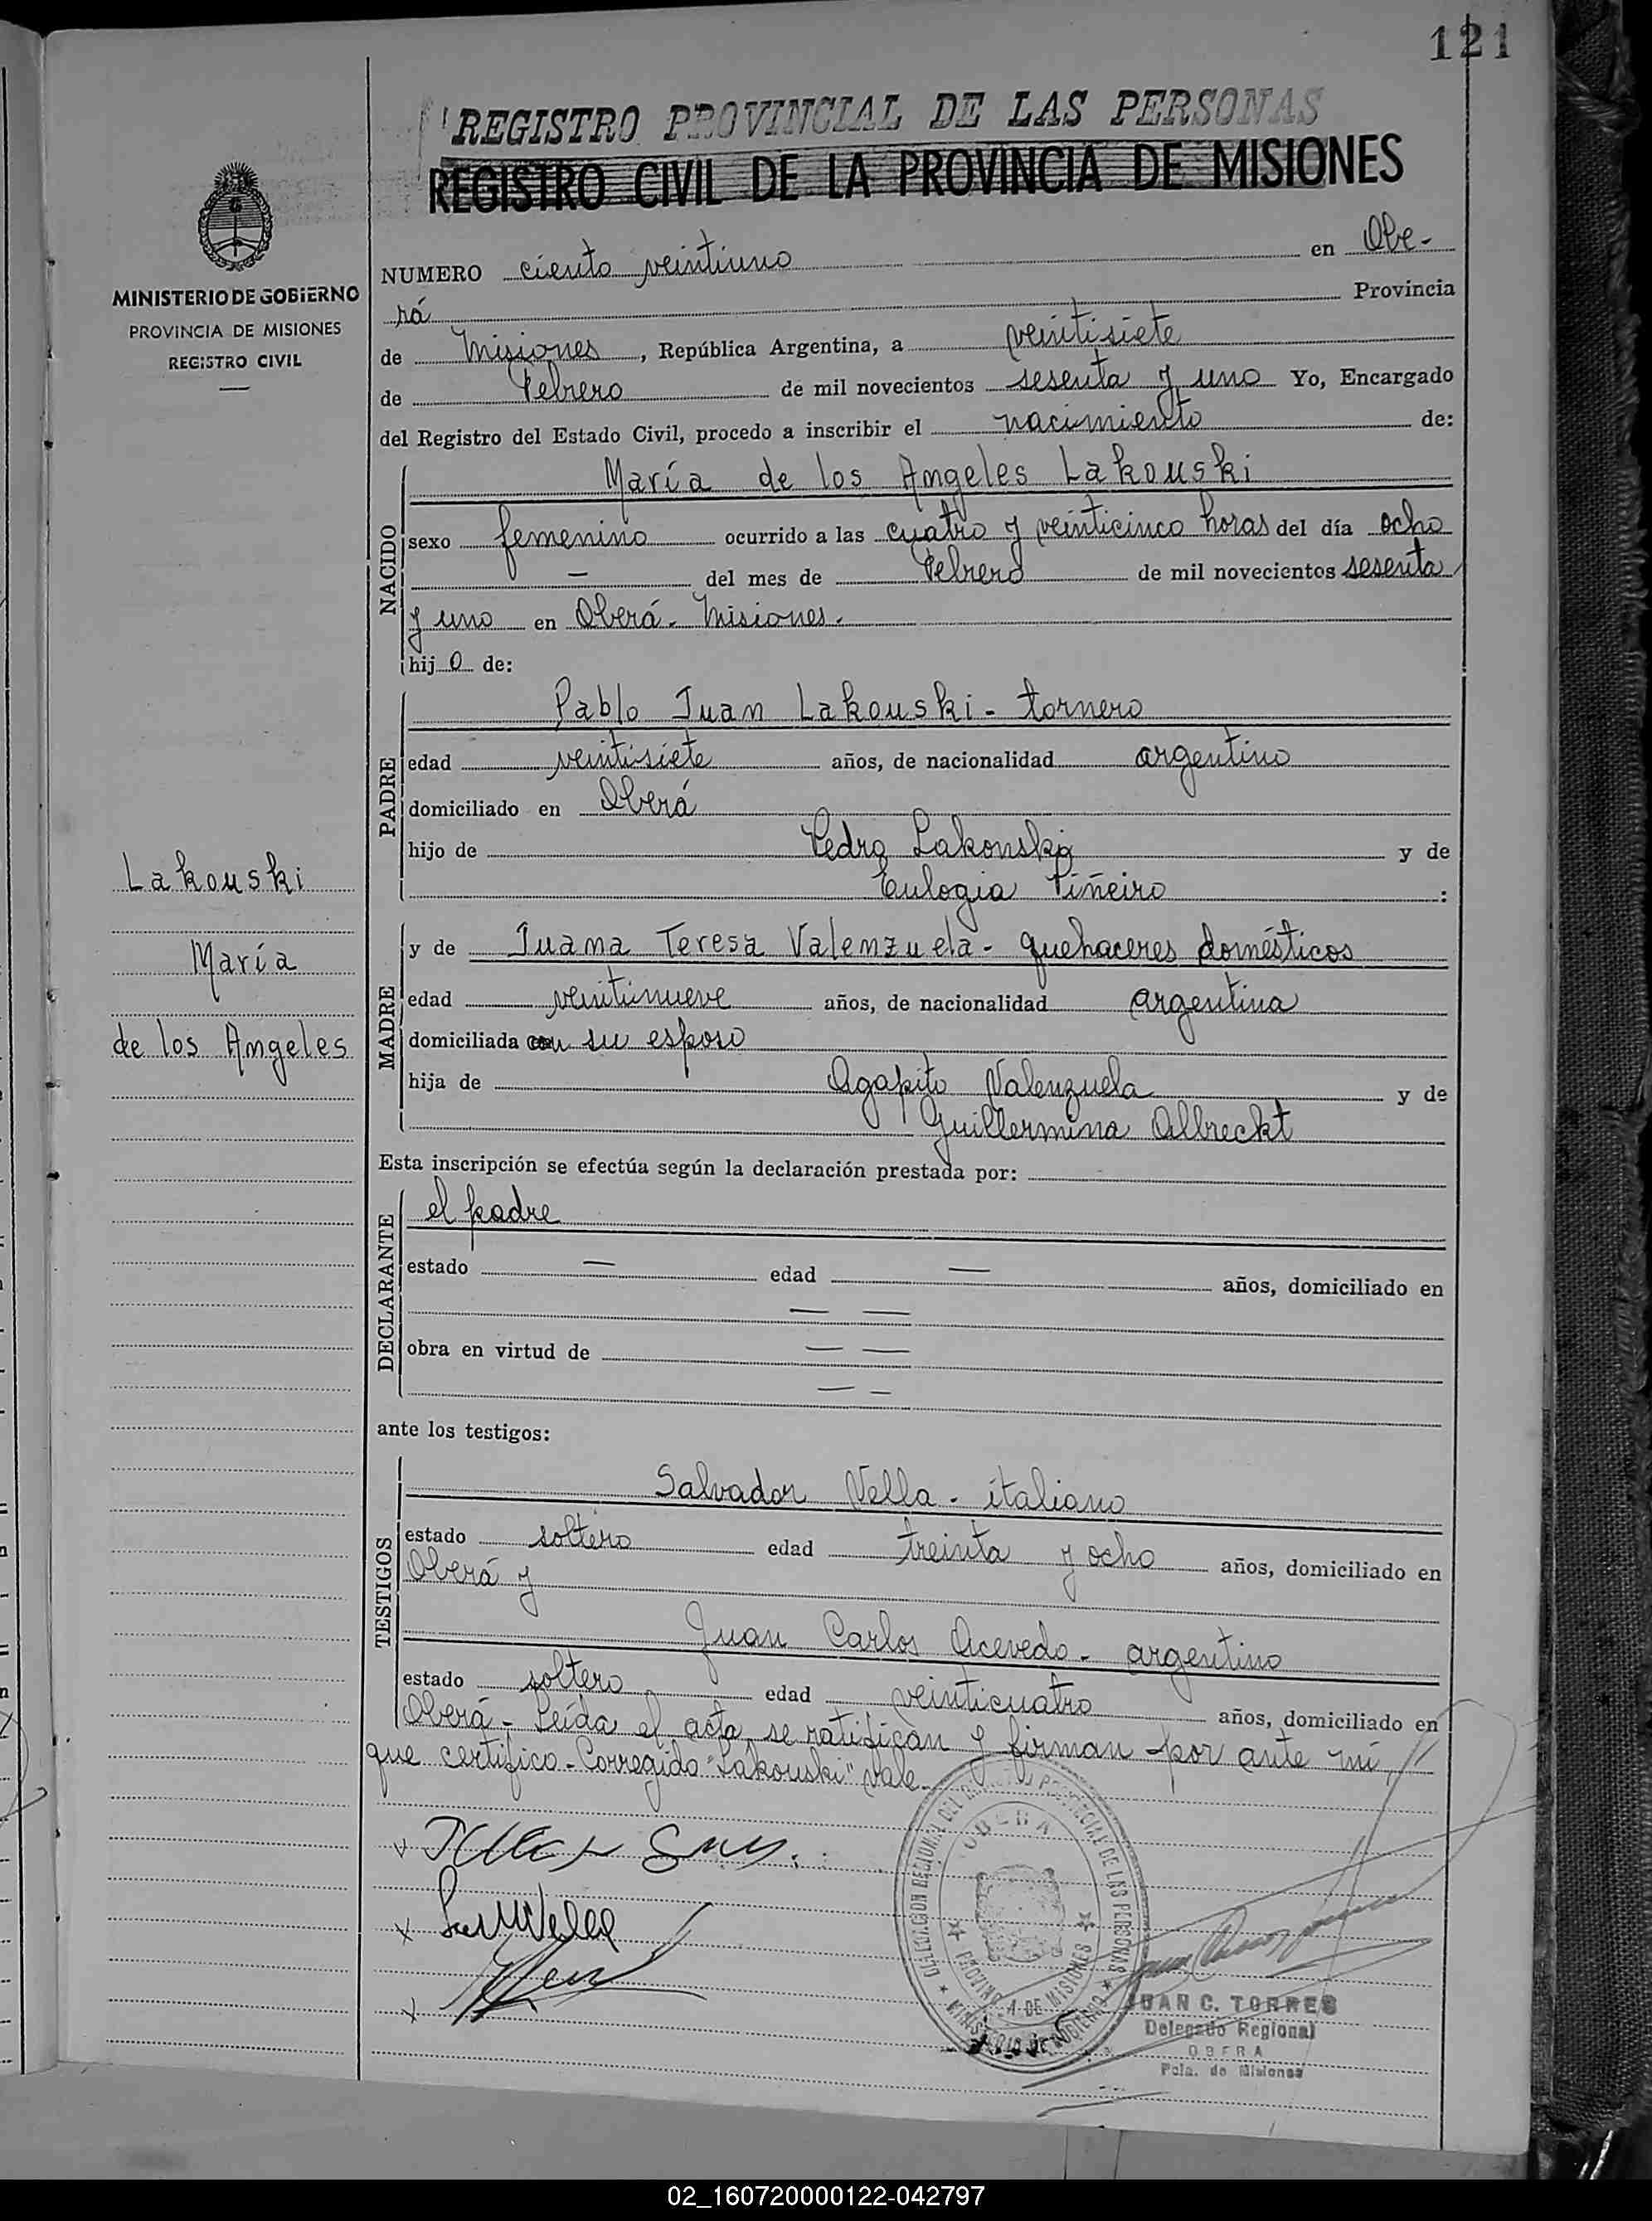 121
REGISTRO PROVINCIAL DE LAS PERSONAS
REGISTRO CIVIL DE LA PROVINCIA DE MISIONES
MINISTERIO DE GOBIERNO
PROVINCIA DE MISIONES
REGISTRO CIVIL
NUMERO ciento veintiuno en Obe-
rá Provincia
de Misiones, República Argentina, a veintisiete
de Febrero de mil novecientos sesenta y uno Yo, Encargado
del Registro del Estado Civil, procedo a inscribir el nacimiento de:
NACIDO
María de los Angeles Lakouski
sexo femenino ocurrido a las cuatro y veinticinco horas del día ocho
— del mes de Febrero de mil novecientos sesenta
y uno en Oberá - Misiones.
hijo de:
PADRE
Pablo Juan Lakouski - tornero
edad veintisiete años, de nacionalidad argentino
domiciliado en Oberá
hijo de Pedro Lakouski y de
Eulogia Piñeiro :
Lakouski
María
de los Angeles
MADRE
y de Juana Teresa Valenzuela - quehaceres domésticos
edad veintinueve años, de nacionalidad argentina
domiciliada con su esposo
hija de Agapito Valenzuela y de
Guillermina Albreckt
Esta inscripción se efectúa según la declaración prestada por:
DECLARANTE
el padre
estado — edad — años, domiciliado en
— —
obra en virtud de — —
— —
ante los testigos:
TESTIGOS
Salvador Vella - italiano
estado soltero edad treinta y ocho años, domiciliado en
Oberá y
Juan Carlos Acevedo - argentino
estado soltero edad veinticuatro años, domiciliado en
Oberá - Leída el acta, se ratifican y firman por ante mí,
que certifico - Corregido "Lakouski" vale.
DELEGACION REGIONAL DEL REGISTRO PROVINCIAL DE LAS PERSONAS
OBERA
PROVINCIA DE MISIONES
MINISTERIO DE GOBIERNO
JUAN C. TORRES
Delegado Regional
OBERA
Pcia. de Misiones
02_160720000122-042797